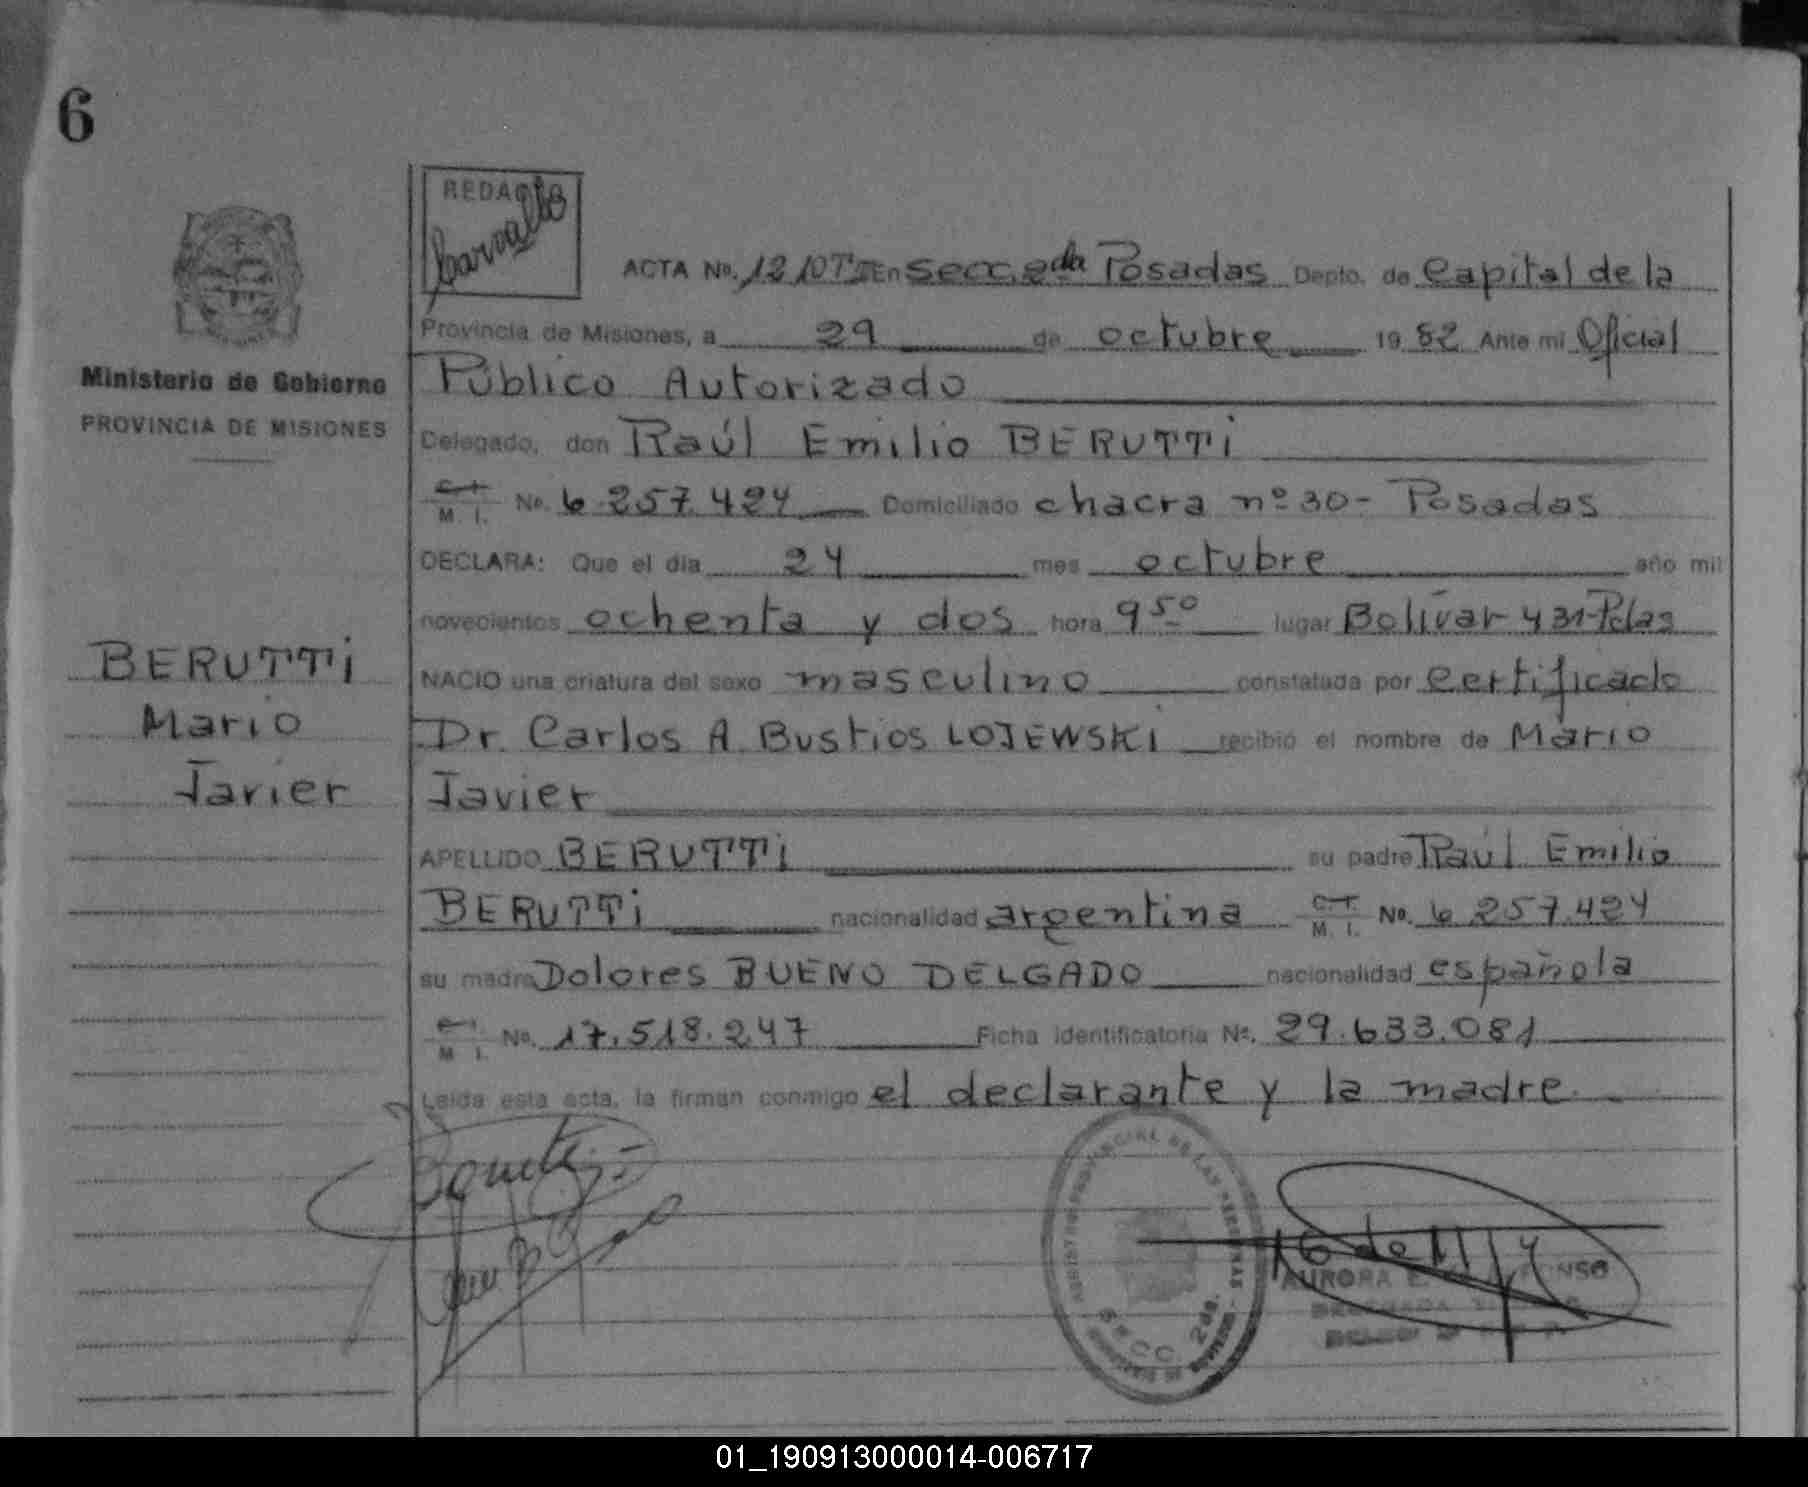 6
REDACTO
Carvallo
ACTA No. 1210TºII En Secc. 2da Posadas Depto. de Capital de la
Provincia de Misiones, a 29 de octubre 1982 Ante mi Oficial
Público Autorizado
Ministerio de Gobierno
PROVINCIA DE MISIONES
Delegado, don Raúl Emilio BERUTTi
C.I. M. I. No. 6.257.424 Domiciliado chacra nº 30 - Posadas
DECLARA: Que el dia 24 mes octubre año mil
novecientos ochenta y dos hora 9 50 lugar Bolívar 431-Pdas
BERUTTi
Mario
Javier
NACIO una criatura del sexo masculino constatada por certificado
Dr. Carlos A. Bustios LOJEWSKi recibió el nombre de Mario
Javier
APELLIDO BERUTTi su padre Raúl Emilio
BERUTTi nacionalidad argentina C.I. M. I. No. 6.257.424
su madre Dolores BUENO DELGADO nacionalidad española
C.I. M. I. No. 17.518.247 Ficha identificatoria Nº. 29.633.081
Leida esta acta, la firman conmigo el declarante y la madre.
REGISTRO PROVINCIAL DE LAS PERSONAS
SECC. 2da.
16 de 11/4
AURORA
01_190913000014-006717